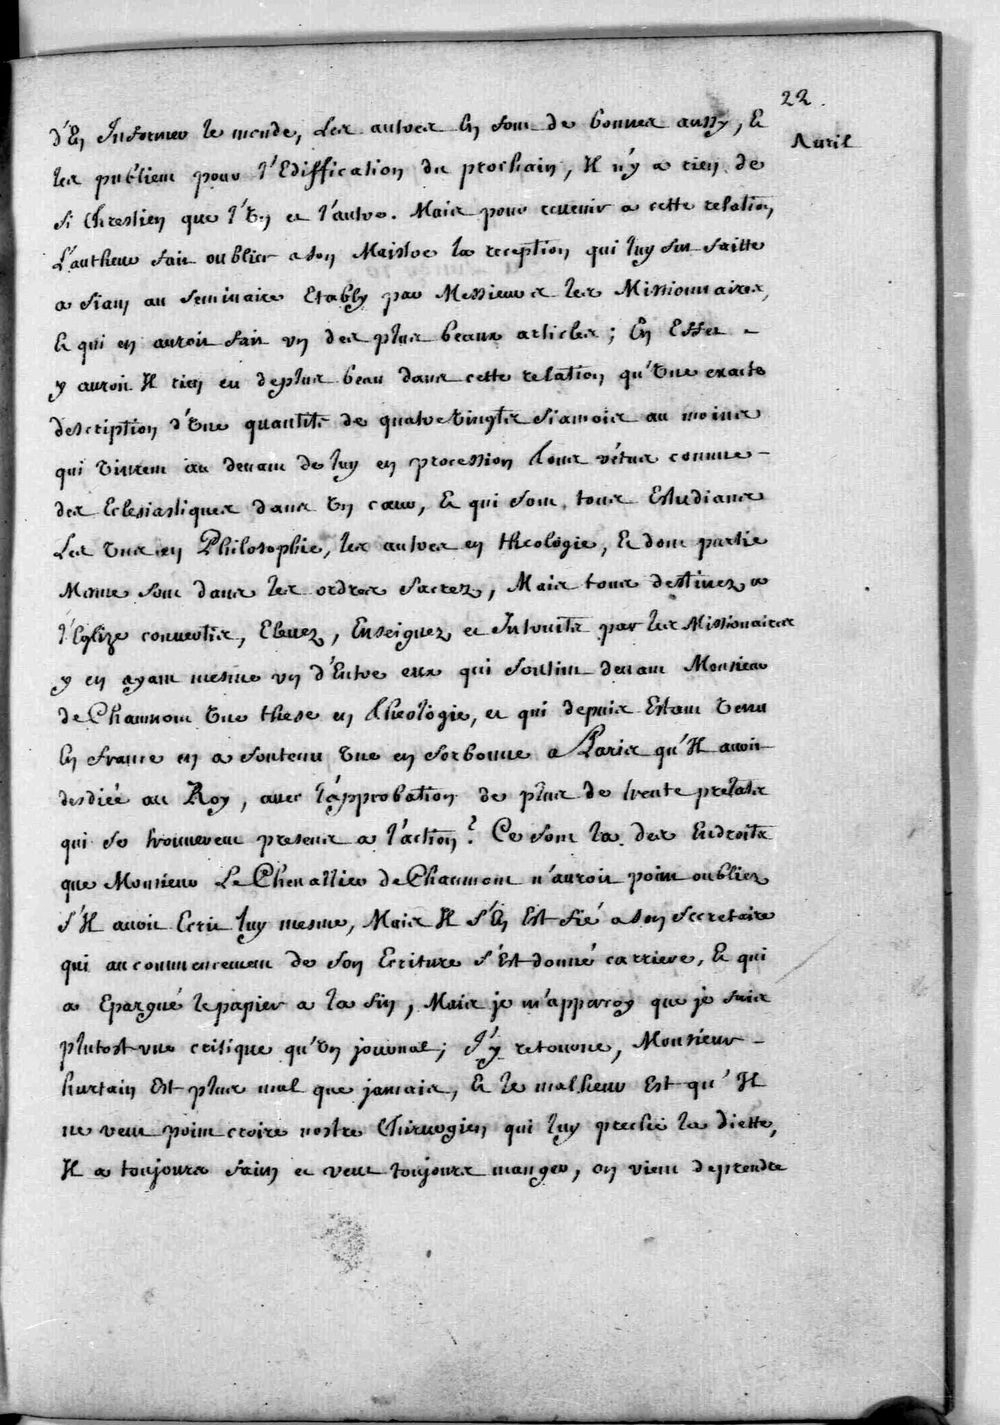 22.
Avril
d'En Informer le monde, Les autres En font de bonnes aussy, Et
les publient pour l'Ediffication du prochain, Il n'y a rien de
si Chrestien que l'Un et l'autre. Mais pour revenir a cette relation
L'autheur fait oublier a son Maistre la reception qui luy fut faitte
a Siam au seminaire Etably par Messieurs les Missionnaires,
Et qui en auroit fait un des plus beaux articles; En Effet -
y auroit Il rien eu de plus beau dans cette relation qu'Une exacte
description d'Une quantité de quatre Vingts Siamois au moins
qui Vinrent au devant de luy en procession tous vétus comme -
des Eclesiastiques dans Un cœur, Et qui sont tous Estudians
Les Uns en Philosophie, les autres en theologie, Et dont partie
Mesme sont dans les ordres sacrez, Mais tous destinez a
l'Eglize convertis, Elevez, Enseignez et Intruits par les Missionaires
y en ayant mesme un d'Entre eux qui soutint devant Monsieur
de Chaumont Une these en theologie, et qui depuis Estant Venu
En france en a soutenu Une en sorbonne a Paris qu'Il avoit
desdiée au Roy, avec l'approbation de plus de trente prelats
qui se trouverent presens a l'action? Ce sont la des Endroits
que Monsieur Le Chevallier de Chaumont n'auroit point oubliez
s'Il avoit Ecrit luy mesme, Mais Il s'En Est fié a son secretaire
qui au commencement de son Ecriture s'Est donné carriere, Et qui
a Epargné le papier a la fin, Mais je m'apperçoy que je fais
plutost une critique qu'Un journal; J'y retourne, Monsieur -
hurtain Est plus mal que jamais, Et le malheur Est qu'Il
ne veut point croire nostre Chirurgien qui luy preche la diette,
Il a toujours faim et veut toujours manger, on vient de prendre